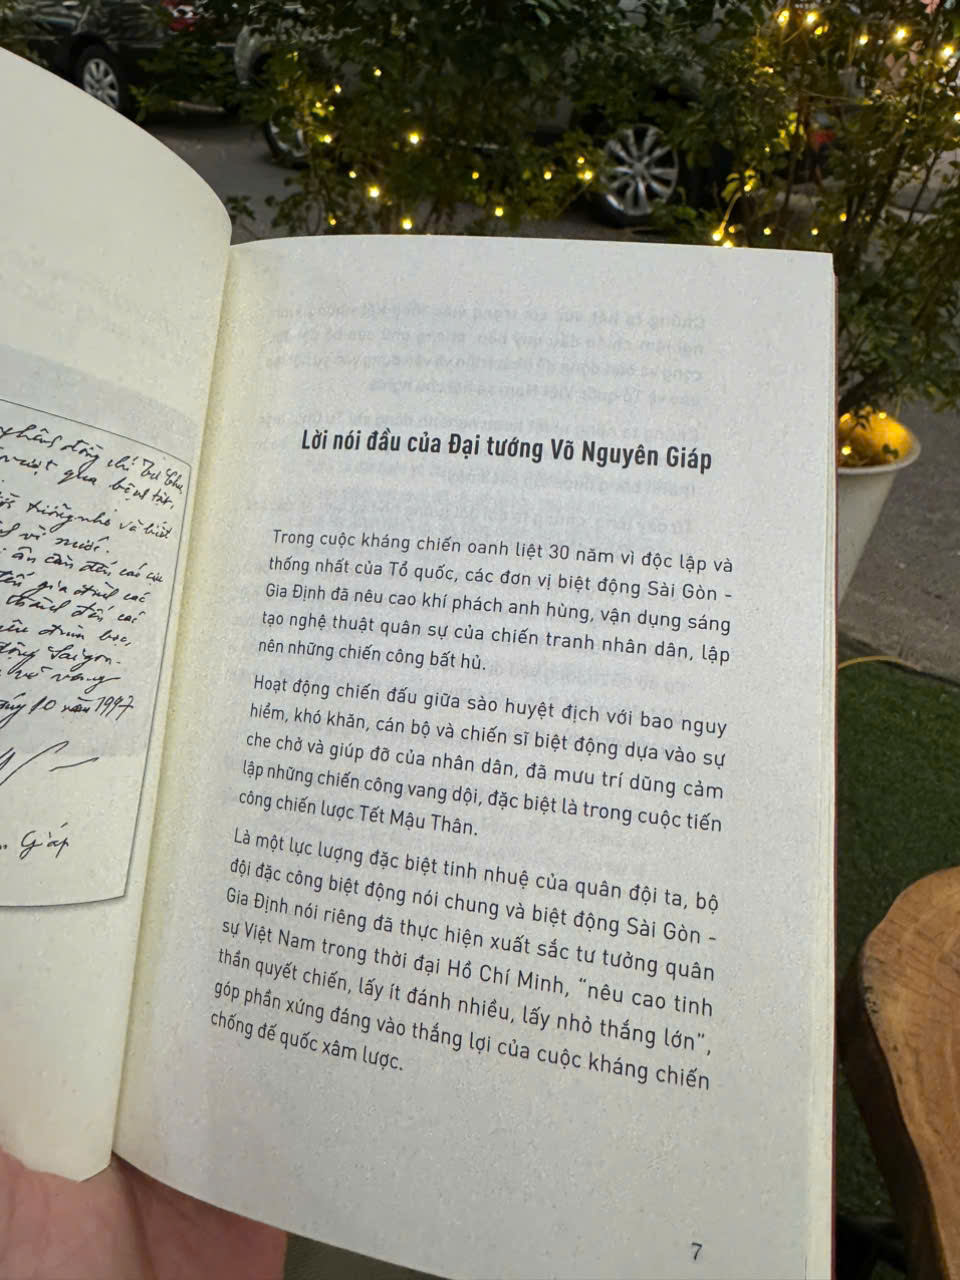 đồng chí Tư Chu,
vượt qua bệnh tật,
và biết
ân cần đến các
gia đình các
đến các
Saigon.
vẻ vang
10 năm 1997
Giáp
Lời nói đầu của Đại tướng Võ Nguyên Giáp
Trong cuộc kháng chiến oanh liệt 30 năm vì độc lập và
thống nhất của Tổ quốc, các đơn vị biệt động Sài Gòn -
Gia Định đã nêu cao khí phách anh hùng, vận dụng sáng
tạo nghệ thuật quân sự của chiến tranh nhân dân, lập
nên những chiến công bất hủ.
Hoạt động chiến đấu giữa sào huyệt địch với bao nguy
hiểm, khó khăn, cán bộ và chiến sĩ biệt động dựa vào sự
che chở và giúp đỡ của nhân dân, đã mưu trí dũng cảm
lập những chiến công vang dội, đặc biệt là trong cuộc tiến
công chiến lược Tết Mậu Thân.
Là một lực lượng đặc biệt tinh nhuệ của quân đội ta, bộ
đội đặc công biệt động nói chung và biệt động Sài Gòn -
Gia Định nói riêng đã thực hiện xuất sắc tư tưởng quân
sự Việt Nam trong thời đại Hồ Chí Minh, “nêu cao tinh
thần quyết chiến, lấy ít đánh nhiều, lấy nhỏ thắng lớn”,
góp phần xứng đáng vào thắng lợi của cuộc kháng chiến
chống đế quốc xâm lược.
7